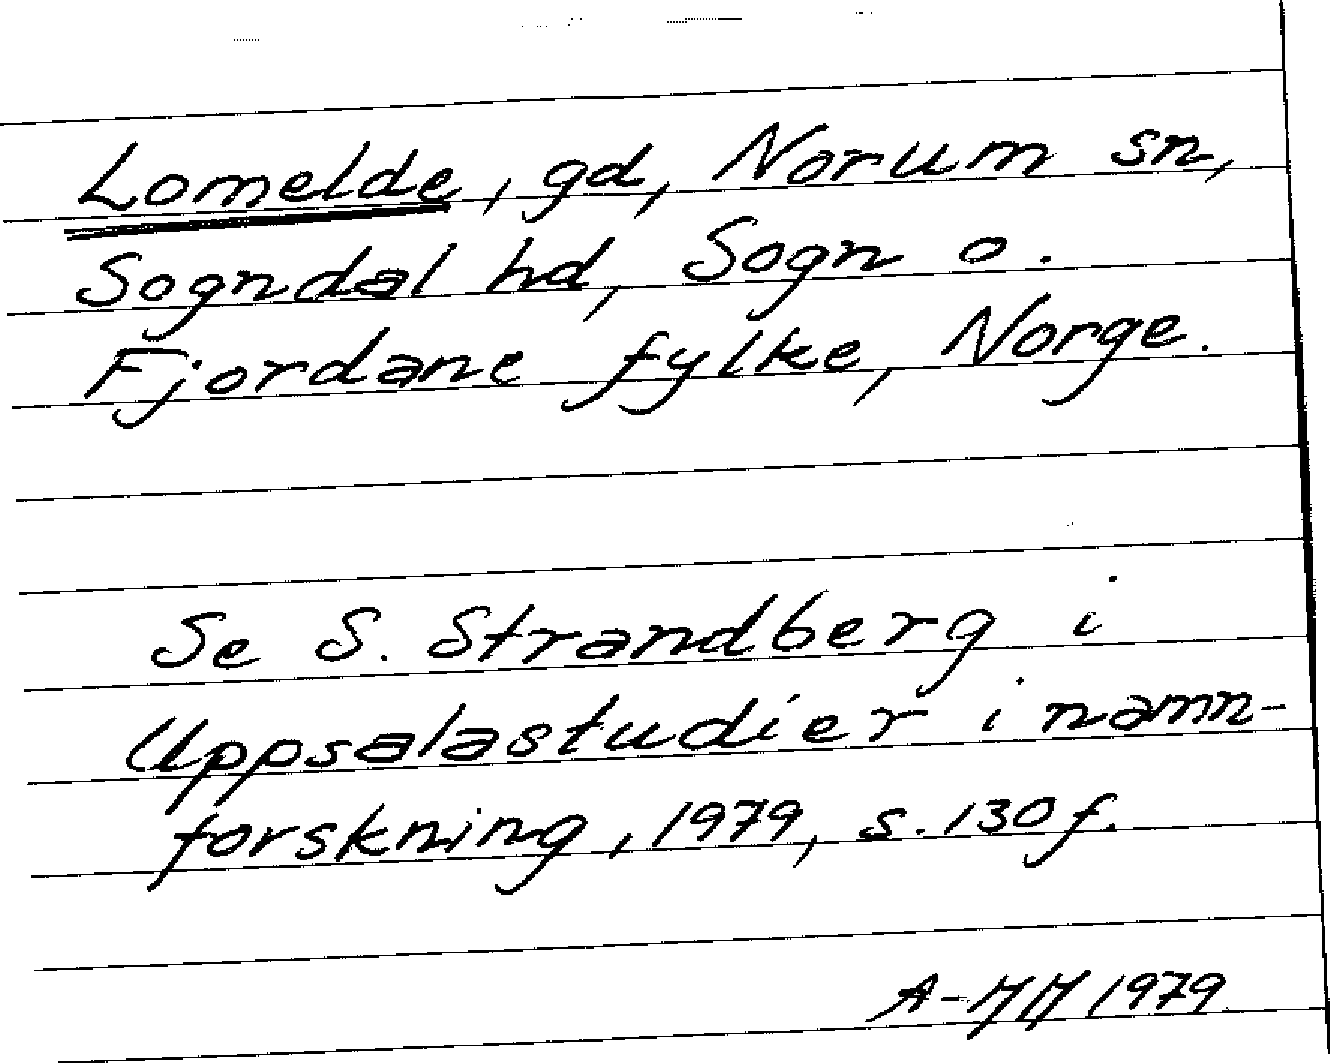 Lomelde, gd, Norum sn,
Sogndal hd, Sogn o.
Fjordane fylke, Norge.
Se S. Strandberg i
Uppsalastudier i namn-
forskning, 1979, s. 130 f.
1979